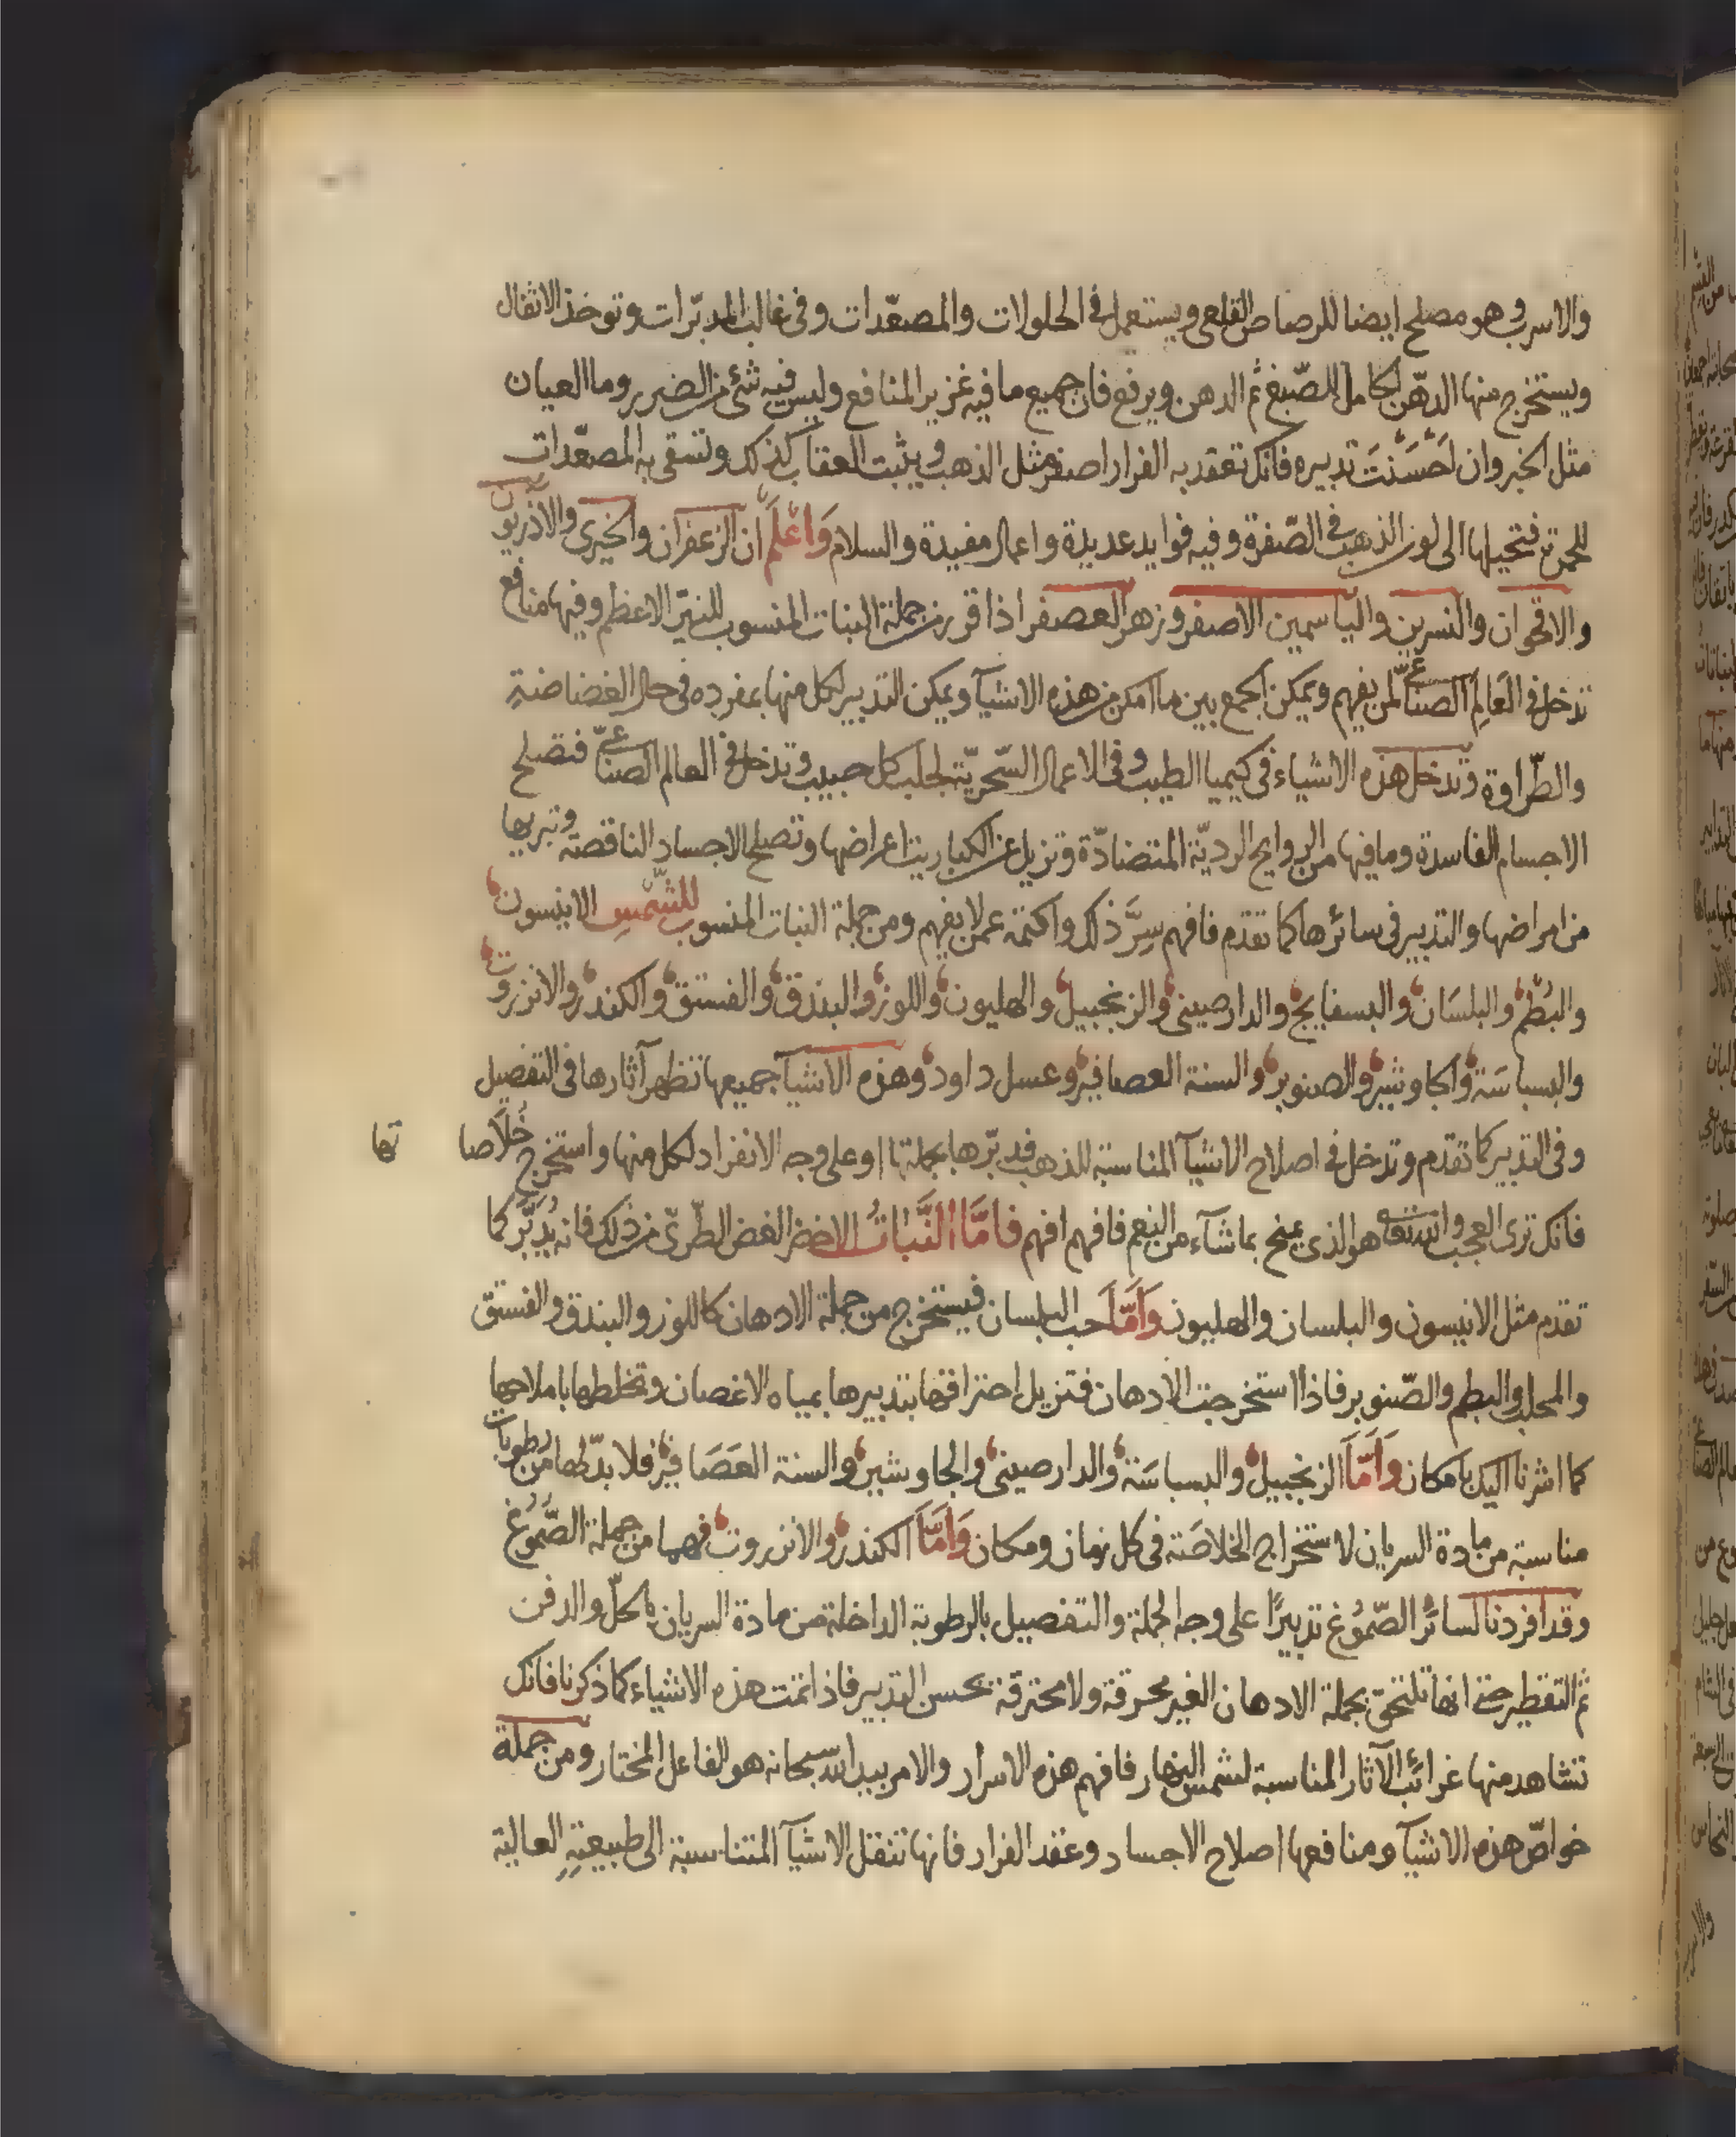 والاسرب وهو مصلح ايضا للرصاص القلعى ويستعمل فى الحلولات والمصعّدات وفى غالب المدبّرات وتوخذ الاثفال
ويستخرج منها الدهن الحامل للصّبغ ثم الدهن ويرفع فان جميع ما فيه غزير المنافع وليس فيه شئ من الضرر وما العيان
مثل الخبر وان احْسَنْتَ تدبيره فانك تعقد به الفرار اصفر مثل الذهب ويثبت العقاب كذلك وتسقى به المصعّدات
للحمرة فتحيلها الى لون الذهب فى الصّفرة وفيه فوايد عديدة واعمال مفيدة والسلام وَاعْلَم انّ الزعفران والخيرى والآذريون
والاقحوان والنسرين والياسمين الاصفر وزهر العصفر اذا قرر من جملة النبات المنسوب للنيّر الاعظم وفيها منافع
تدخل فى العَالم الصناعىّ لمن يفهم ويمكن الجمع بين ما امكن من هذه الاشيآ ويمكن التدبير لكل منها بمفرده فى حال الغضاضةِ
والطّراوة وتدخل هذه الاشياء فى كيميا الطيب وفى الاعمال السّحريّة لجلب كل حبيب وتدخل فى العالم الصناعىّ فتصلح
الاجسام الفاسدة وما فيها من الروايح الرديّة المتضادّة وتزيل عن الكباريت اعراضها وتصلح الاجساد الناقصة وتبريها
من امراضها والتدبير فى سائرها كما تقدم فافهم سِرَّ ذلك واكتمه عمن لا يفهم ومن جملة النبات المنسوب للشّمسِ الانيسون
والبُطْم والبلسَان والبسفايج والدارصينى والزنجبيل والهليون واللوز والبندق والفستق والكندر والانزروت
والبسباسَة والجاوشير والصنوبر والسنة العصافير وعسل داود وهذه الاشيآ جميعها تظهر آثارها فى التفصيل
وفى التدبير كما تقدم وتدخل فى اصلاح الاشيآ المناسبة للذهب فدبّرها بجملتها او على وجه الانفراد لكل منها واستخرج خُلَاصاتها
فانك ترى العجب والله تعالى هو الذى يمنح بما شآء من النعم فافهم افهم فامَّا النَّبَاتُ الاخضر الغض الطّرىّ من ذلك فانه يُدَبَّرُ كما
تقدم مثل الانيسون والبلسان والهليون وَاَمَّا حب البلسان فيستخرج من جملة الادهان كاللوز والبندق والفستق
والمحلب والبطم والصّنوبر فاذا استخرجت الادهان فتزيل احتراقها بتدبيرها بمياه الاغصان وتخلطها باملاحها
كما اشرنا اليك بامكان وَاَمَّا الزنجبيل والبسباسَة والدارصينى والجاوشير والسنة العَصَافير فلا بدّ لها من رطوبات
مناسبة من مادة السريان لاستخراج الخلاصَة فى كل زمان ومكان وَاَمَّا الكندر والانزروت فهما من جملة الصُّمُوُغ
وقد افردنا لسائر الصّمُوغ تدبيرًا على وجه الجملة والتفصيل بالرطوبة الداخلة من مادة السريان بالحلّ والدفن
ثم التقطير حتى انها تلتحق بجملة الادهان الغير محرقة ولا محترقة بحسن التدبير فاذا تمت هذه الاشياء كما ذكرنا فانك
تشاهد منها غرائب الآثار المناسبة لشمس النهار فافهم هذه الاسرار والامر بيد الله سبحانه هو الفاعل المختار ومن جملة
خواصّ هذه الاشيآ ومنافعها اصلاح الاجساد وعقد الفرار فانها تنقل الاشيآ المتناسبة الى طبيعتِهِ العالية